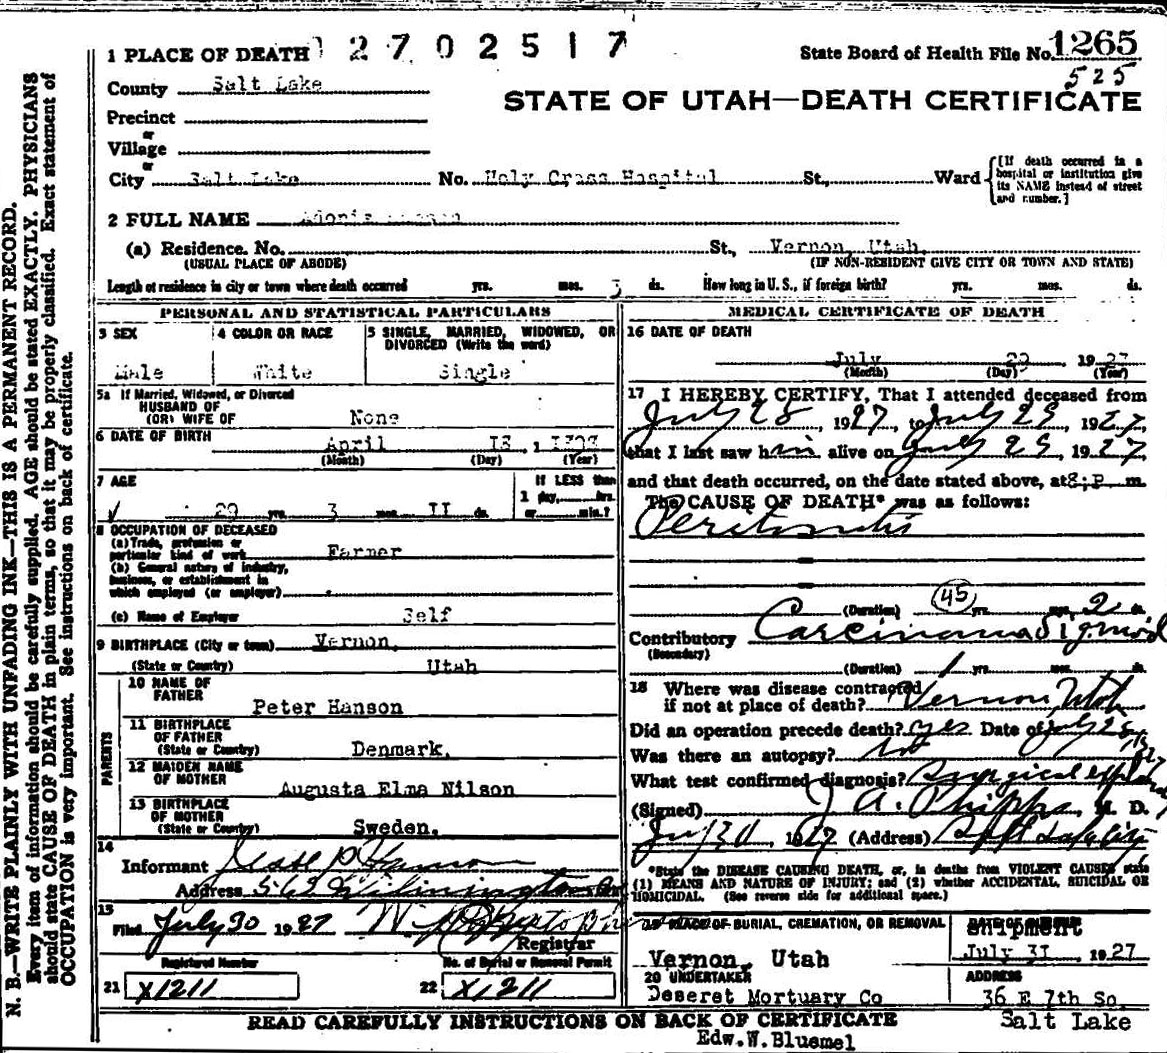 1 PLACE OF DEATH 2702517 State Board of Health File No. 1265
525
County Salt Lake STATE OF UTAH—DEATH CERTIFICATE
Precinct
or
Village
or
City Salt Lake No. Holy Cross Hospital St., Ward [If death occurred in a hospital or institution give its NAME instead of street and number.]
2 FULL NAME
(a) Residence. No. St., Vernon, Utah.
(USUAL PLACE OF ABODE) (IF NON-RESIDENT GIVE CITY OR TOWN AND STATE)
Length of residence in city or town where death occurred yrs. mos. 3 ds. How long in U. S., if foreign birth? yrs. mos. ds.
PERSONAL AND STATISTICAL PARTICULARS
3 SEX 4 COLOR OR RACE 5 SINGLE, MARRIED, WIDOWED, OR DIVORCED (Write the word)
Male White Single
5a If Married, Widowed, or Divorced
HUSBAND OF
(OR) WIFE OF None
6 DATE OF BIRTH April 18,
(Month) (Day) (Year)
7 AGE If LESS than
1 day, hrs.
29 yrs. 3 mos. II ds. or min.?
8 OCCUPATION OF DECEASED
(a) Trade, profession or
particular kind of work Farmer
(b) General nature of industry,
business, or establishment in
which employed (or employer)
(c) Name of Employer Self
9 BIRTHPLACE (City or town) Vernon,
(State or Country) Utah
PARENTS
10 NAME OF
FATHER
Peter Hanson
11 BIRTHPLACE
OF FATHER
(State or Country) Denmark.
12 MAIDEN NAME
OF MOTHER
Augusta Elma Nilson
13 BIRTHPLACE
OF MOTHER
(State or Country) Sweden.
14
Informant Jesse P Hanson
Address 563
15
Filed July 30 1927
Registrar
Registered Number No. of Burial or Removal Permit
21 X1211 22 X1211
MEDICAL CERTIFICATE OF DEATH
16 DATE OF DEATH
July 29 1927
(Month) (Day) (Year)
17 I HEREBY CERTIFY, That I attended deceased from
July 28, 1927, to July 29, 1927,
that I last saw him alive on July 29, 1927
and that death occurred, on the date stated above, at 8:P m.
The CAUSE OF DEATH* was as follows:
Peritonitis
45
(Duration) yrs. mos. 2 ds.
Contributory Carcinoma Sigmoid
(Secondary)
(Duration) 1 yrs. mos. ds.
18 Where was disease contracted
if not at place of death? Vernon, Utah
Did an operation precede death? yes Date of July 28, 1927
Was there an autopsy? No
What test confirmed diagnosis? Surgical
(Signed) J. A. Phipps, M. D.
July 30, 1927 (Address) Salt Lake City
*State the DISEASE CAUSING DEATH, or, in deaths from VIOLENT CAUSES state
(1) MEANS AND NATURE OF INJURY; and (2) whether ACCIDENTAL, SUICIDAL OR
HOMICIDAL. (See reverse side for additional space.)
19 PLACE OF BURIAL, CREMATION, OR REMOVAL Shipment
Vernon, Utah July 31 1927
20 UNDERTAKER ADDRESS
Deseret Mortuary Co 36 E 7th So.
READ CAREFULLY INSTRUCTIONS ON BACK OF CERTIFICATE Salt Lake
Edw.W.Bluemel
N. B.—WRITE PLAINLY WITH UNFADING INK—THIS IS A PERMANENT RECORD.
Every item of information should be carefully supplied. AGE should be stated EXACTLY. PHYSICIANS
should state CAUSE OF DEATH in plain terms, so that it may be properly classified. Exact statement of
OCCUPATION is very important. See instructions on back of certificate.